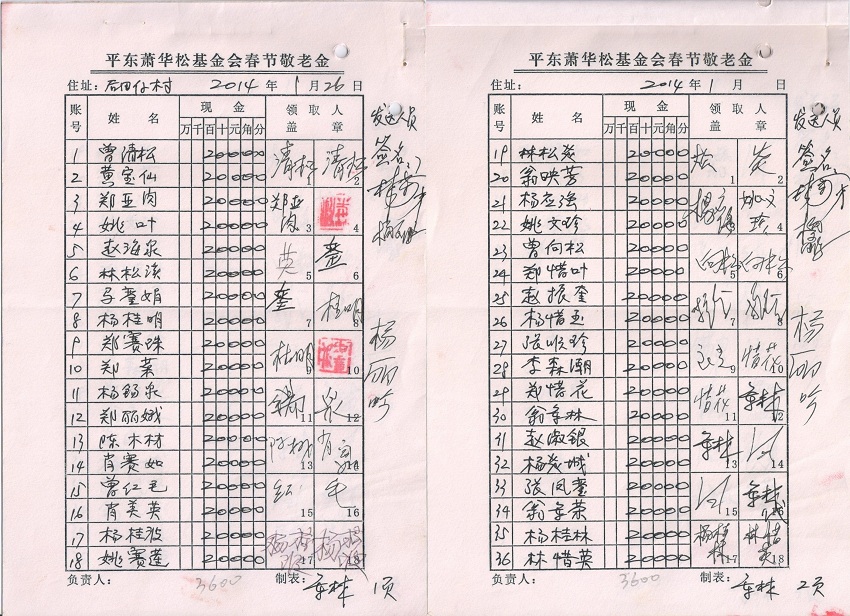 平东萧华松基金会春节敬老金
住址：后田仔村 2014 年 1 月 26 日
账号 姓名 现金 领取人盖章
万 千 百 十 元 角 分
1 曾清松 20000 清松 1 清松 2
2 黄宝仙 20000
3 郑亚肉 20000 郑亚肉 3 4
4 姚叶 20000
5 赵海泉 20000 英 5 銮 6
6 林松 20000
7 马銮娟 20000 銮 7 桂明 8
8 杨桂明 20000
9 郑赛珠 20000 桂明 9 10
10 郑英 20000
11 杨锡泉 20000 11 泉 12
12 郑丽娥 20000
13 陈木材 20000 13 14
14 肖赛如 20000
15 曾红毛 20000 红 15 毛 16
16 肖美英 20000
17 杨桂波 20000 17 18
18 姚赛莲 20000
负责人： 3600 制表：章林 1页
发送人员
签名
杨丽吟
平东萧华松基金会春节敬老金
住址： 2014 年 1 月 日
账号 姓名 现金 领取人盖章
万 千 百 十 元 角 分
19 林松炎 20000 松 1 炎 2
20 翁映芳 20000
21 杨应强 20000 3 姚文珍 4
22 姚文珍 20000
23 曾向松 20000 向松 5 向松 6
24 郑惜叶 20000
25 赵振奎 20000 7 8
26 杨惜玉 20000
27 张顺珍 20000 9 惜花 10
28 李森潮 20000
29 郑惜花 20000 惜花 11 章林 12
30 翁章林 20000
31 赵淑银 20000 章林 13 14
32 杨炎城 20000
33 张凤銮 20000 15 章林 16
34 翁章荣 20000
35 杨桂林 20000 杨桂林 17 林惜英 18
36 林惜英 20000
负责人： 3600 制表：章林 2页
发送人员
签名
杨丽吟